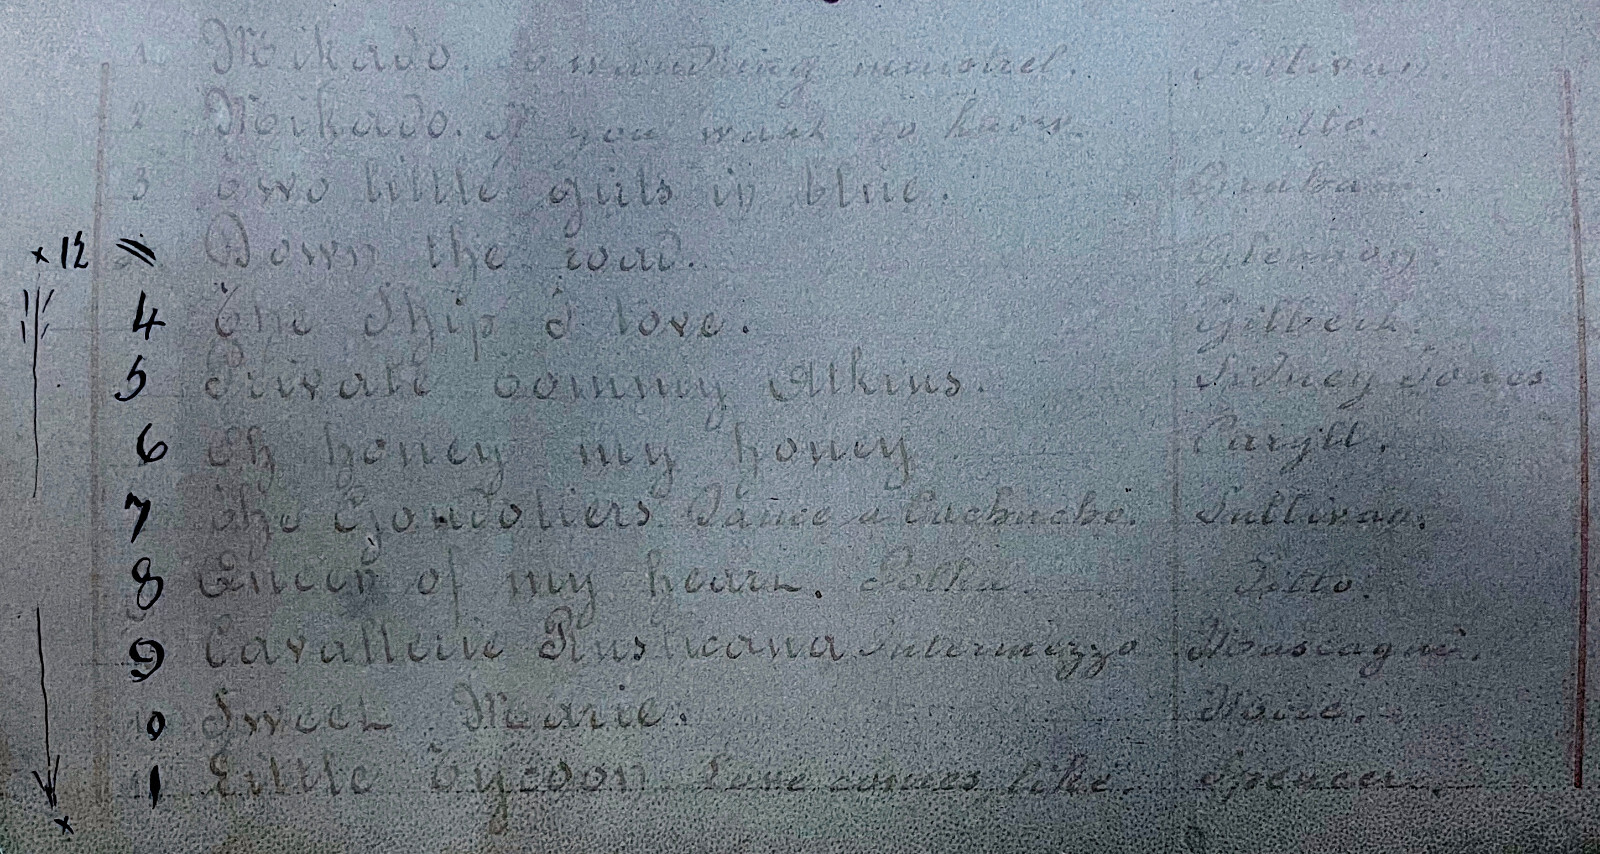 1 Mikado. A wand'ring minstrel. Sullivan.
2 Mikado. If you want to know. Ditto.
3 Two little girls in blue. Graham.
x 12 Down the road. Gilennon.
4 The Ship I love. Gilbert.
5 Private Tommy Atkins. Sidney Jones
6 Oh honey my honey Caryll.
7 The Gondoliers Dance a Cachucha. Sullivan.
8 Queen of my heart. Polka. Ditto.
9 Cavallerie Rusticana Intermezzo Mascagni.
10 Sweet Marie. Moore.
11 Little Tycoon Love comes like. Spencer.
x